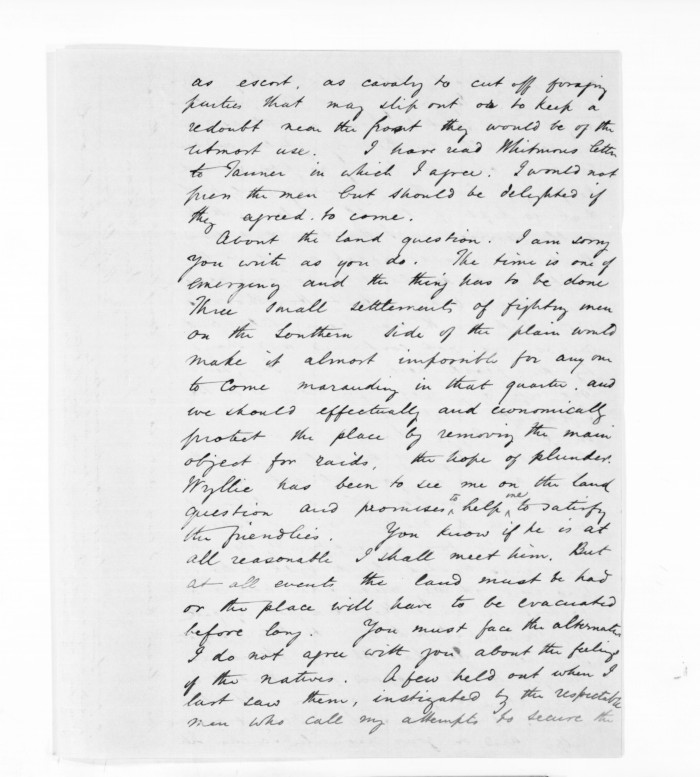 as escort, as cavalry to cut off foraging
parties that may slip out or to keep a
redoubt near the front they would be of the
utmost use. I have read Whitmores letter
to Tanner in which I agree. I would not
press the men but should be delighted if
they agreed to come.
About the land question. I am sorry
you write as you do. The time is one of
emergency and the thing has to be done
Three small settlements of fighting men
on the Southern side of the plain would
make it almost impossible for any one
to come marauding in that quarter, and
we should effectually and economically
protect the place by removing the main
object for raids, the hope of plunder.
Wyllie has been to see me on the land
question and promises to help one to satisfy
the friendlies. You know if he is at
all reasonable I shall meet him. But
at all events the land must be had
or the place will have to be evacuated
before long. You must face the alternative
I do not agree with you about the feelings
of the natives. A few held out when I
last saw them, instigated by the respectable
men who call my attempts to secure the